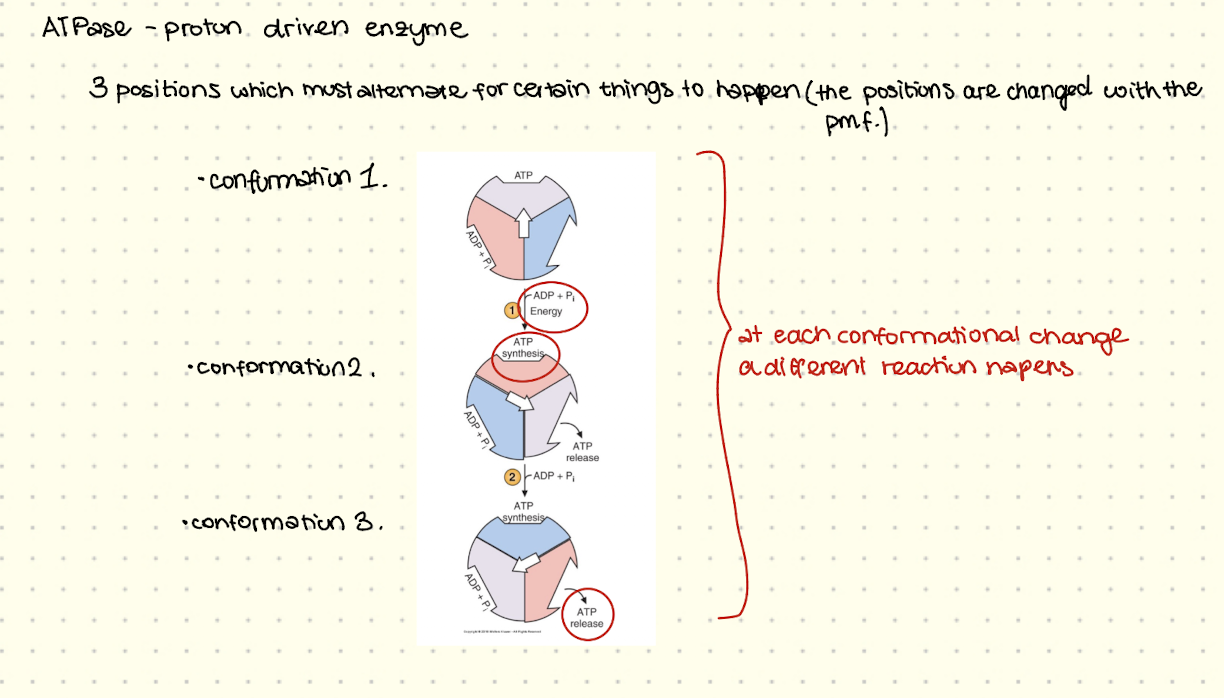 ATPase - proton driven enzyme
3 positions which must alternate for certain things to happen (the positions are changed with the
pmf.)
• conformation 1.
ATP
ADP + Pi
ADP + Pi
1 Energy
ATP
synthesis
• conformation 2.
ADP + Pi
ATP
release
2 ADP + Pi
ATP
synthesis
• conformation 3.
ADP + Pi
ATP
release
at each conformational change
a different reaction happens